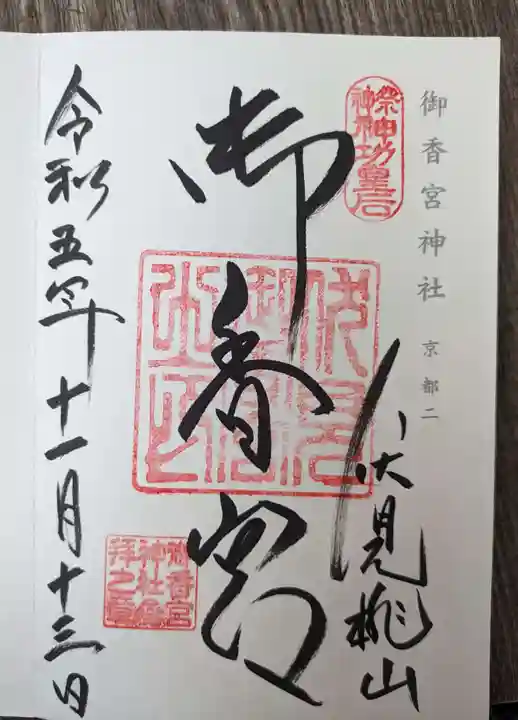 御香宮神社 京都二
祭神 神功皇后
伏見桃山
御香宮
御香宮
神社参
拝之章
令和五年十一月十三日